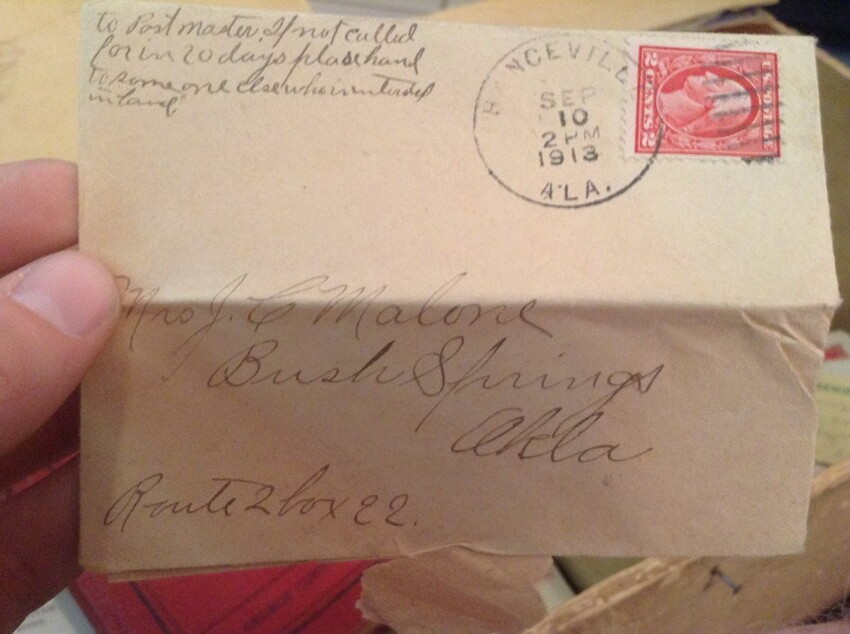 to Postmaster, If not called
for in 20 days please hand
to some one else who is interested
in land
HANCEVILLE
SEP
10
2 PM
1913
ALA.
2 CENTS 2
U.S. POSTAGE
Mrs J. C Malone
Bush Springs
Okla
Route 2 box 22.